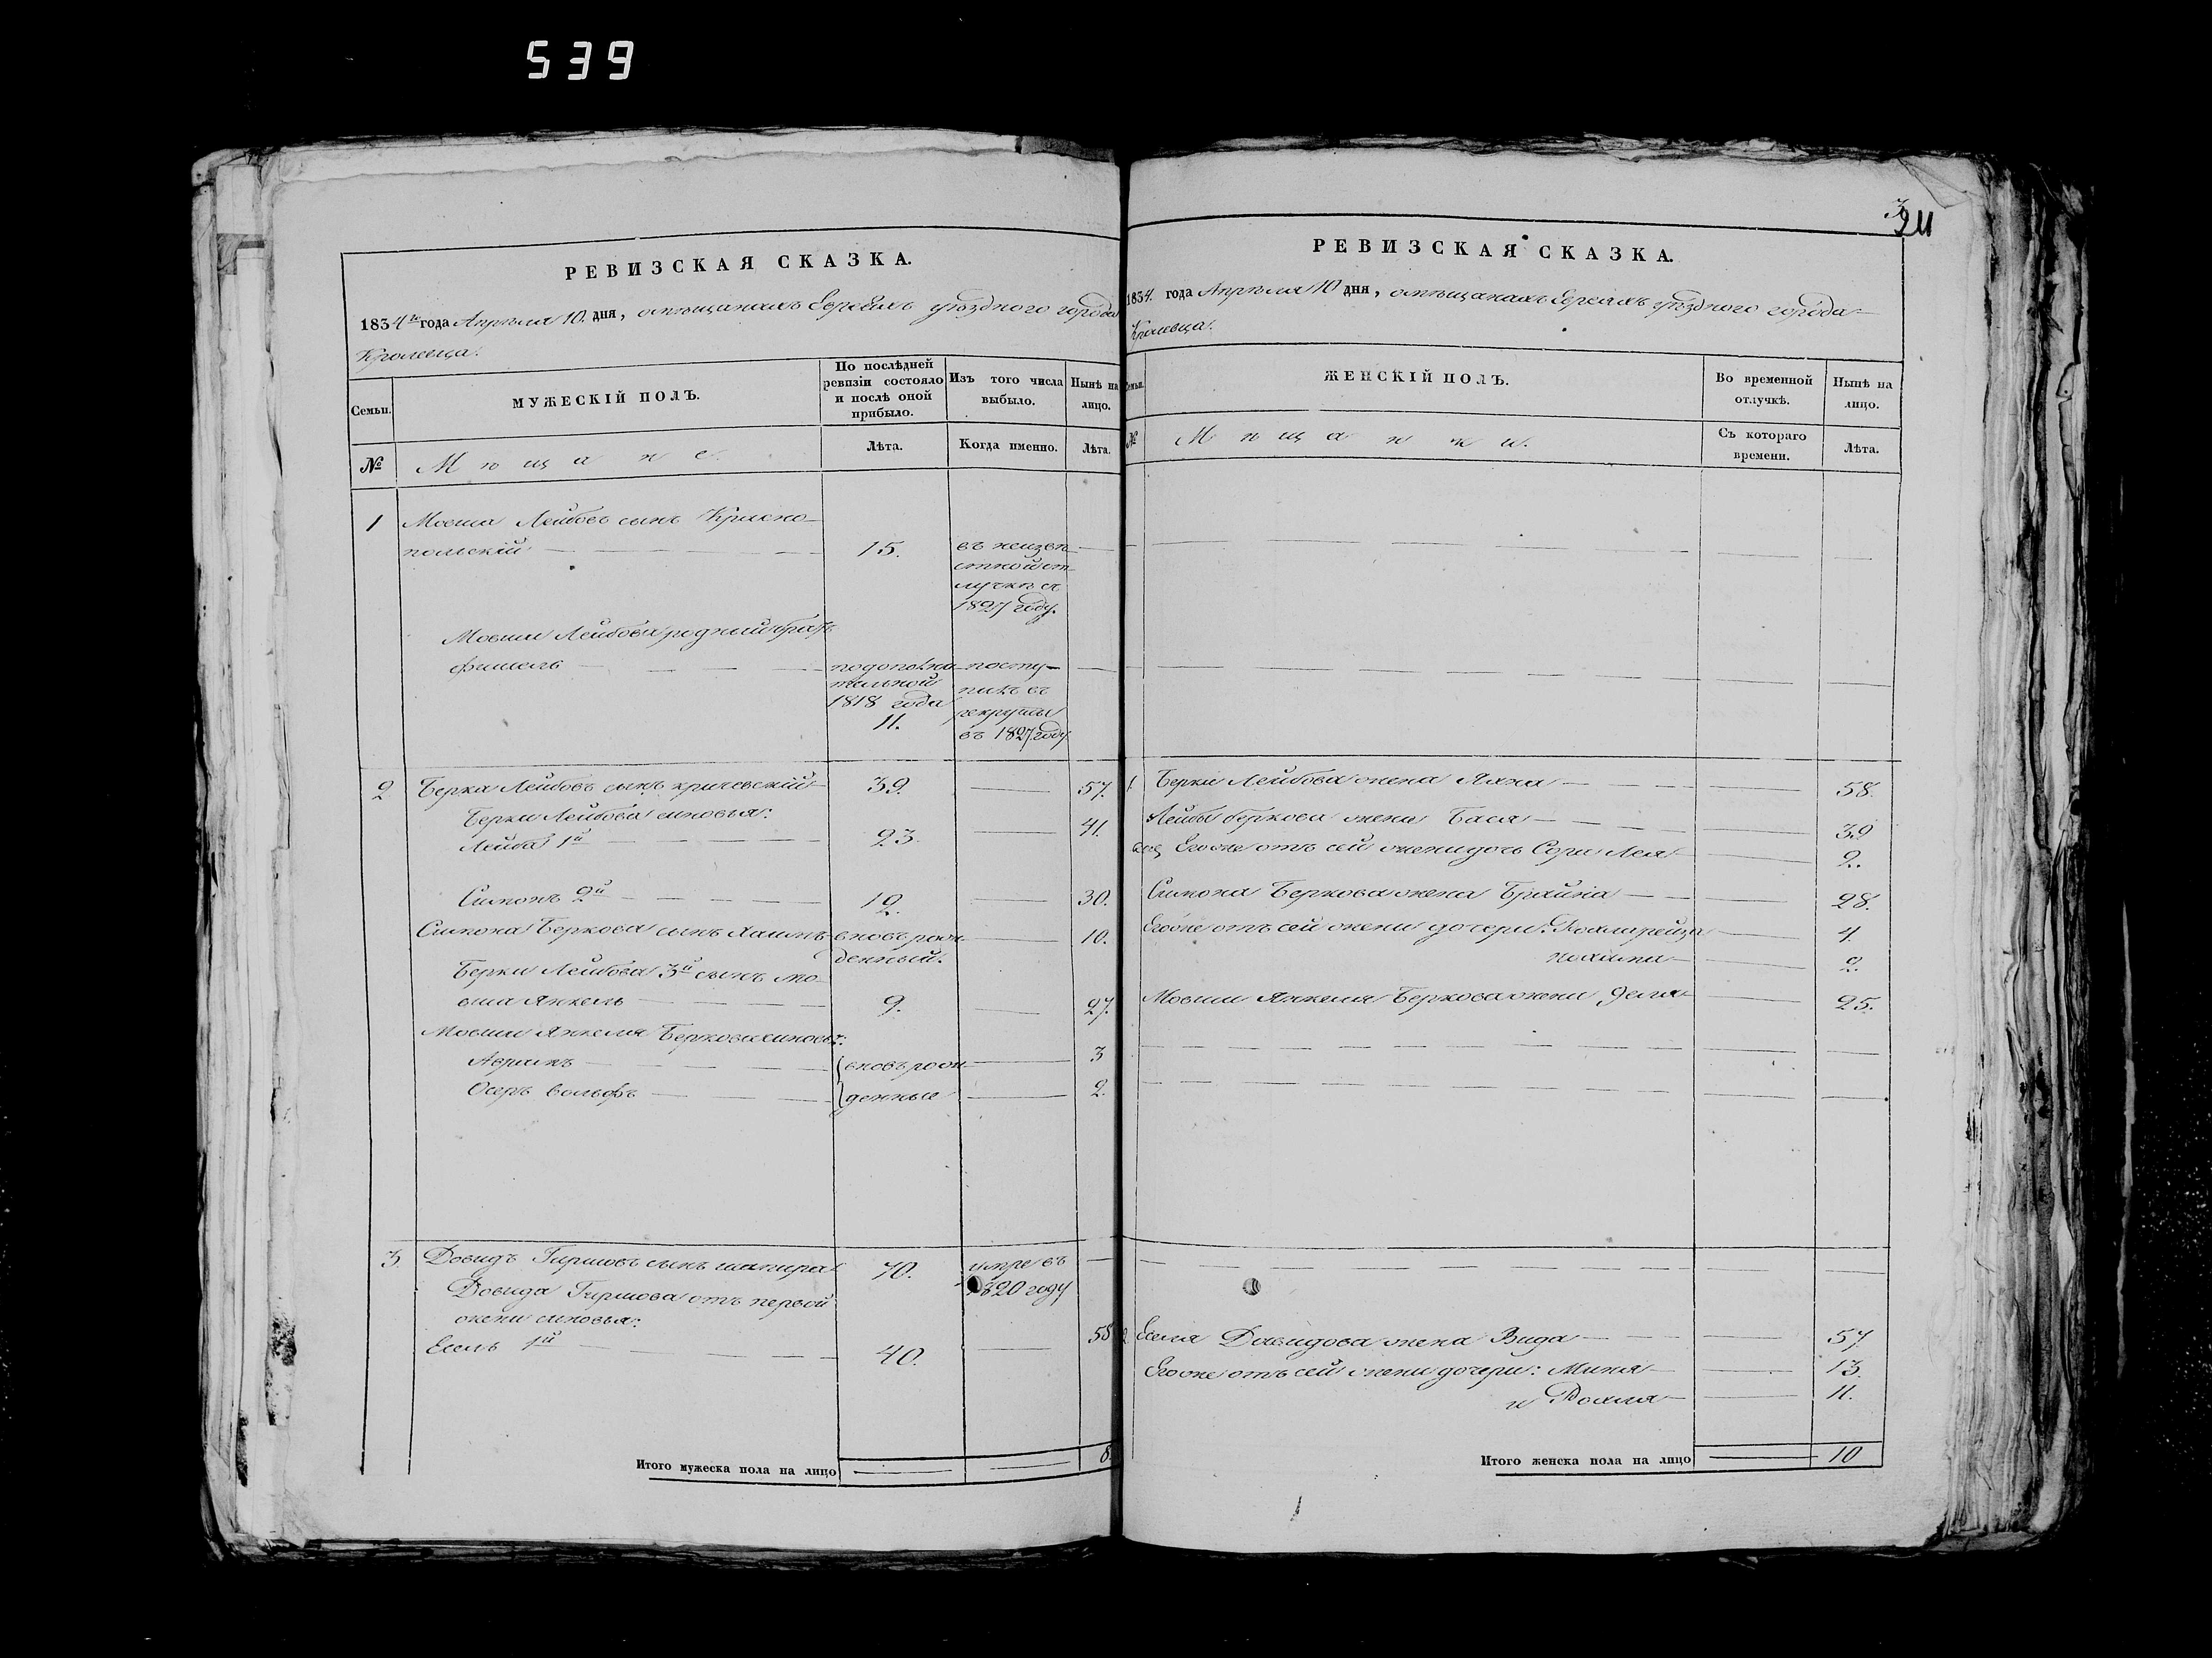 539
РЕВИЗСКАЯ СКАЗКА.
1834го года Апрѣля 10. дня, о мѣщанахъ Евреяхъ уѣздного города
Кролевца.
Семьи.
МУЖЕСКІЙ ПОЛЪ.
По послѣдней ревизіи состояло и послѣ оной прибыло.
Изъ того числа выбыло.
Нынѣ на лицо.
№
Мѣщане.
Лѣта.
Когда именно.
Лѣта.
1 Мовша Лейбовъ сынъ Красно-
польскій 15. въ неизвѣ-
стной от-
лучкѣ съ
1827 году.
Мовши Лейбова родный братъ
Фишель по дополни- посту-
тельной пилъ въ
1818 года рекруты
11. въ 1827 году
2 Берка Лейбовъ сынъ кричевскій 39. 57.
Берки Лейбова сыновья:
Лейба 1й 23. 41.
Симонъ 2й 12. 30.
Симона Беркова сынъ Хаимъ вновь рож- 10.
денный.
Берки Лейбова 3й сынъ мо-
вша Янкель 9. 27.
Мовши Янкеля Беркова сыновья:
Аврамъ вновь рож- 3
Осеръ Вольфъ денные 2.
3 Довидъ Гиршовъ сынъ шапира 70. умре въ
1820 году
Довида Гиршова отъ первой
жены сыновья:
Есель 1й 40. 58
Итого мужеска пола на лицо 8.
3
РЕВИЗСКАЯ СКАЗКА.
1834. года Апрѣля 10 дня, о мѣщанахъ Евреяхъ уѣздного города
Кролевца.
Семьи.
ЖЕНСКІЙ ПОЛЪ.
Во временной отлучкѣ.
Нынѣ на лицо.
№
Мѣщанки.
Съ котораго времени.
Лѣта.
1. Берки Лейбова жена Хана 58.
Лейбы беркова жена Бася 39
Егоже отъ сей жены дочь Сора Лея 2.
Симона Беркова жена Брайна 28.
Егоже отъ сей жены дочери: 4.
2.
Мовши Янкеля Беркова жена Эля 25.
2 Еселя Довидова жена Вида 57
Егоже отъ сей жены дочери: Миня 13.
и Рохля 11.
Итого женска пола на лицо 10